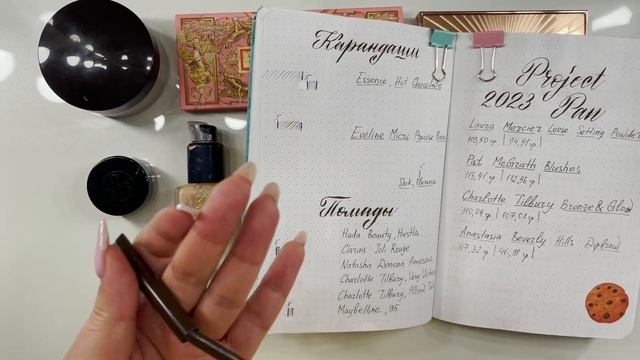 Карандаши
Essence, Hot Chocolate
Eveline Micro Precise Brow
Помады
Huda Beauty, Hustla
Clarins Joli Rouge
Natasha Denona
Charlotte Tilbury, Very
Charlotte Tilbury, Pillow
Maybelline, 95
Project
2023 Pan
Laura Mercier Loose Setting Powder
109,50 гр | 94,91 гр |
Pat McGrath Blushes
113,41 гр | 112,96 гр |
Charlotte Tilbury Bronze & Glow
110,04 гр | 107,01 гр |
Anastasia Beverly Hills Dipbrow
47,32 гр | 46,98 гр |